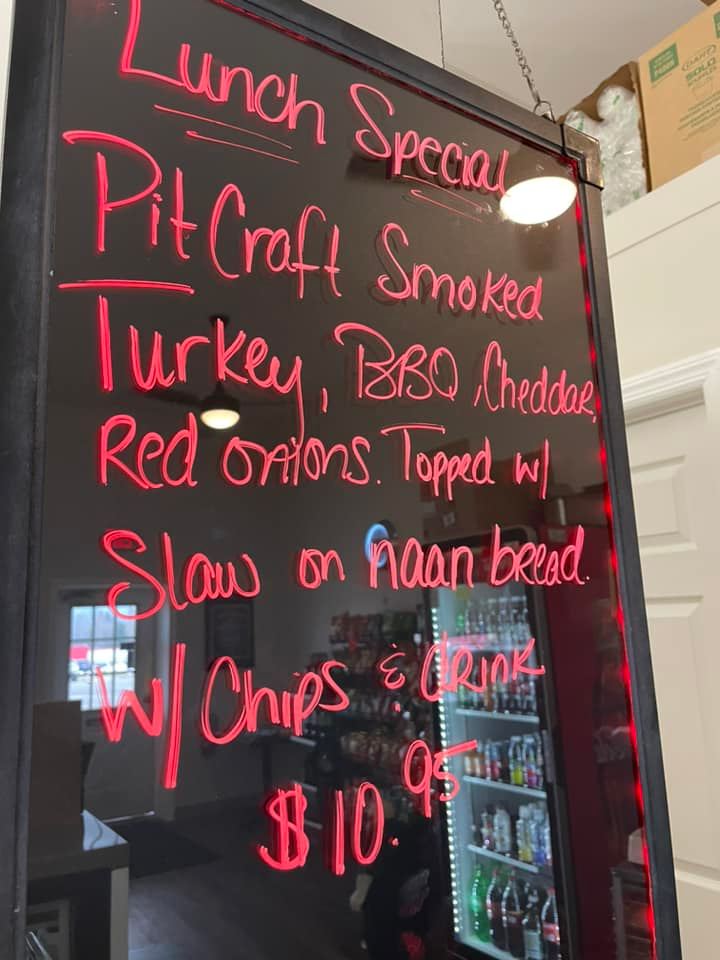 Lunch Special
PitCraft Smoked
Turkey, BBQ, Cheddar,
Red onions. Topped w/
Slaw on naan bread.
w/ Chips & drink
$10.95
DART
SOLO